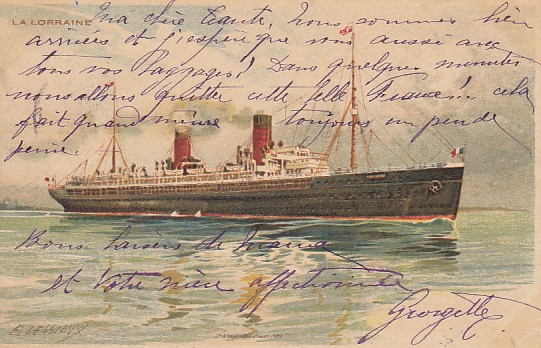 LA LORRAINE
Ma chère Tante, Nous sommes bien
arrivées et j'espère que vous aussi avec
tous vos bagages! Dans quelques minutes
nous allons quitter cette belle France!.. cela
fait quand même toujours un peu de
peine.
Bons baisers de Mama
et Votre nièce affectionnée
Georgette
E. LESSIEUX